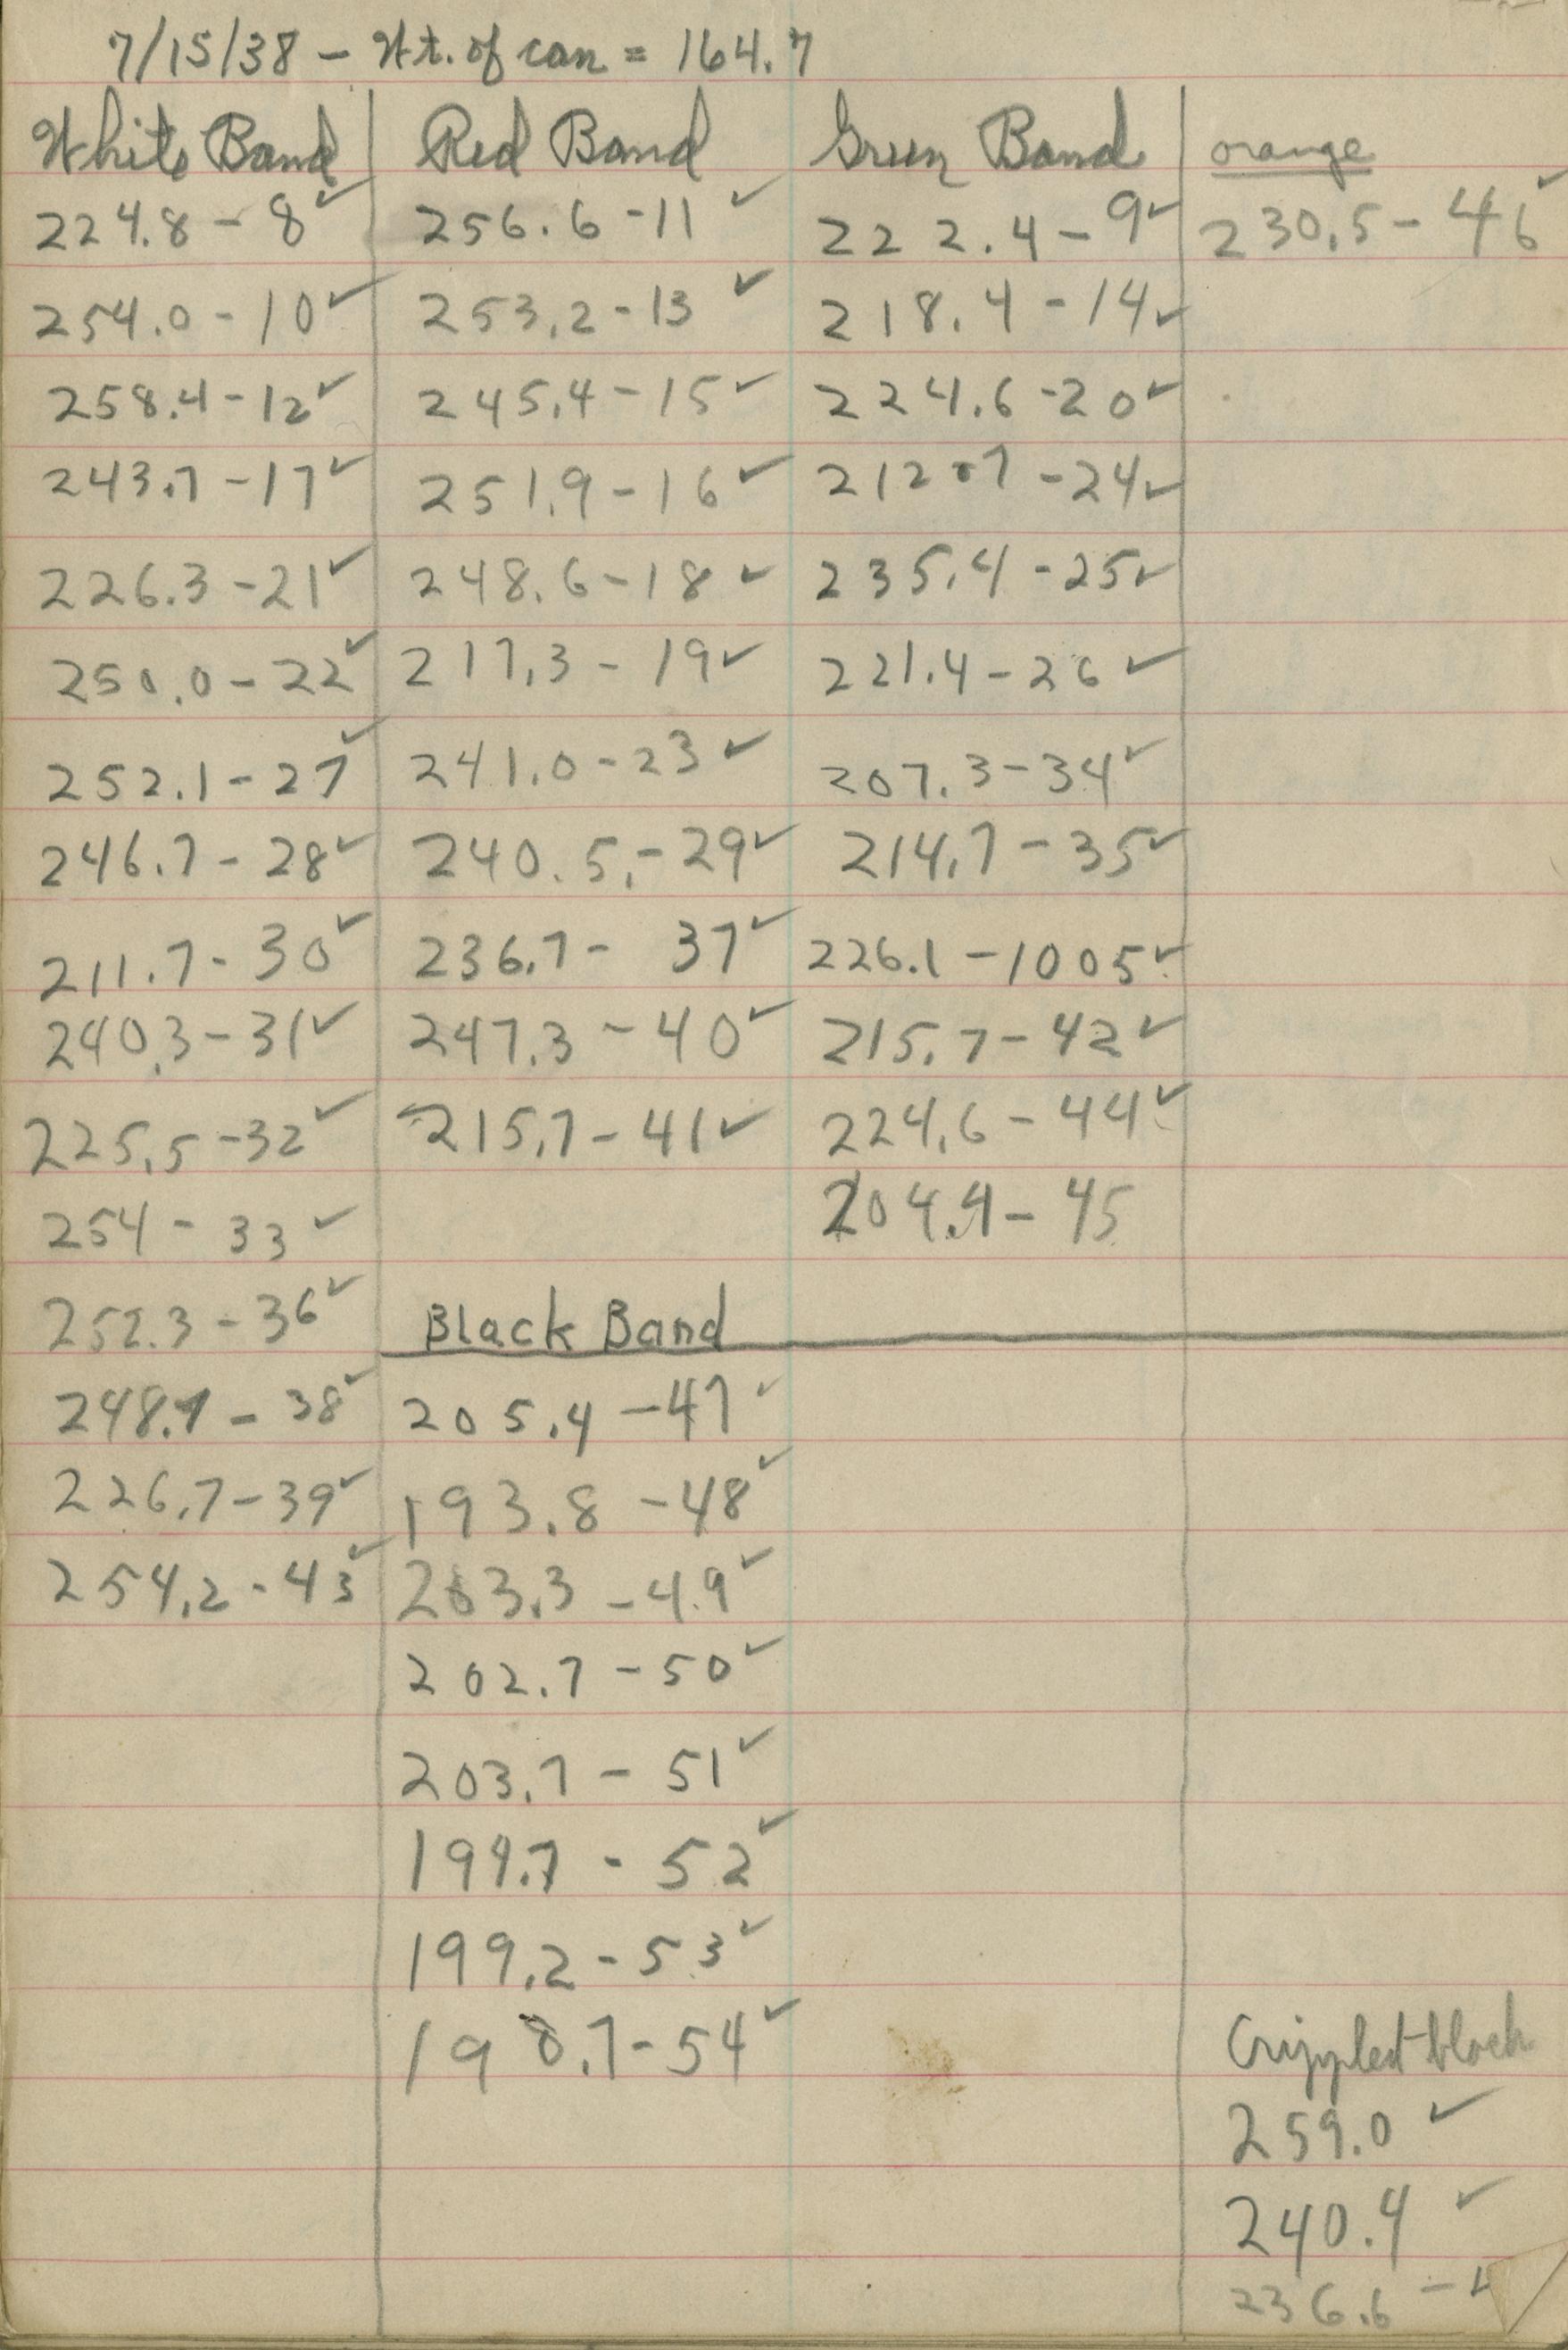 7/15/38 - Wt. of can = 164.7
White Band
224.8 - 8 ✓
254.0 - 10 ✓
258.4 - 12 ✓
243.7 - 17 ✓
226.3 - 21 ✓
250.0 - 22 ✓
252.1 - 27 ✓
246.7 - 28 ✓
211.7 - 30 ✓
240.3 - 31 ✓
225.5 - 32 ✓
254 - 33 ✓
252.3 - 36 ✓
248.7 - 38 ✓
226.7 - 39 ✓
254.2 - 43 ✓
Red Band
256.6 - 11 ✓
253.2 - 13 ✓
245.4 - 15 ✓
251.9 - 16 ✓
248.6 - 18 ✓
217.3 - 19 ✓
241.0 - 23 ✓
240.5. - 29 ✓
236.7 - 37 ✓
247.3 - 40 ✓
215.7 - 41 ✓
Black Band
205.4 - 47 ✓
193.8 - 48 ✓
203.3 - 49 ✓
202.7 - 50 ✓
203.7 - 51 ✓
199.7 - 52 ✓
199.2 - 53 ✓
198.7 - 54 ✓
Green Band
222.4 - 9 ✓
218.4 - 14 ✓
224.6 - 20 ✓
212.7 - 24 ✓
235.4 - 25 ✓
221.4 - 26 ✓
207.3 - 34 ✓
214.7 - 35 ✓
226.1 - 1005 ✓
215.7 - 42 ✓
224.6 - 44 ✓
204.4 - 45
orange
230.5 - 46 ✓
Crippled black
259.0 ✓
240.4 ✓
236.6 -